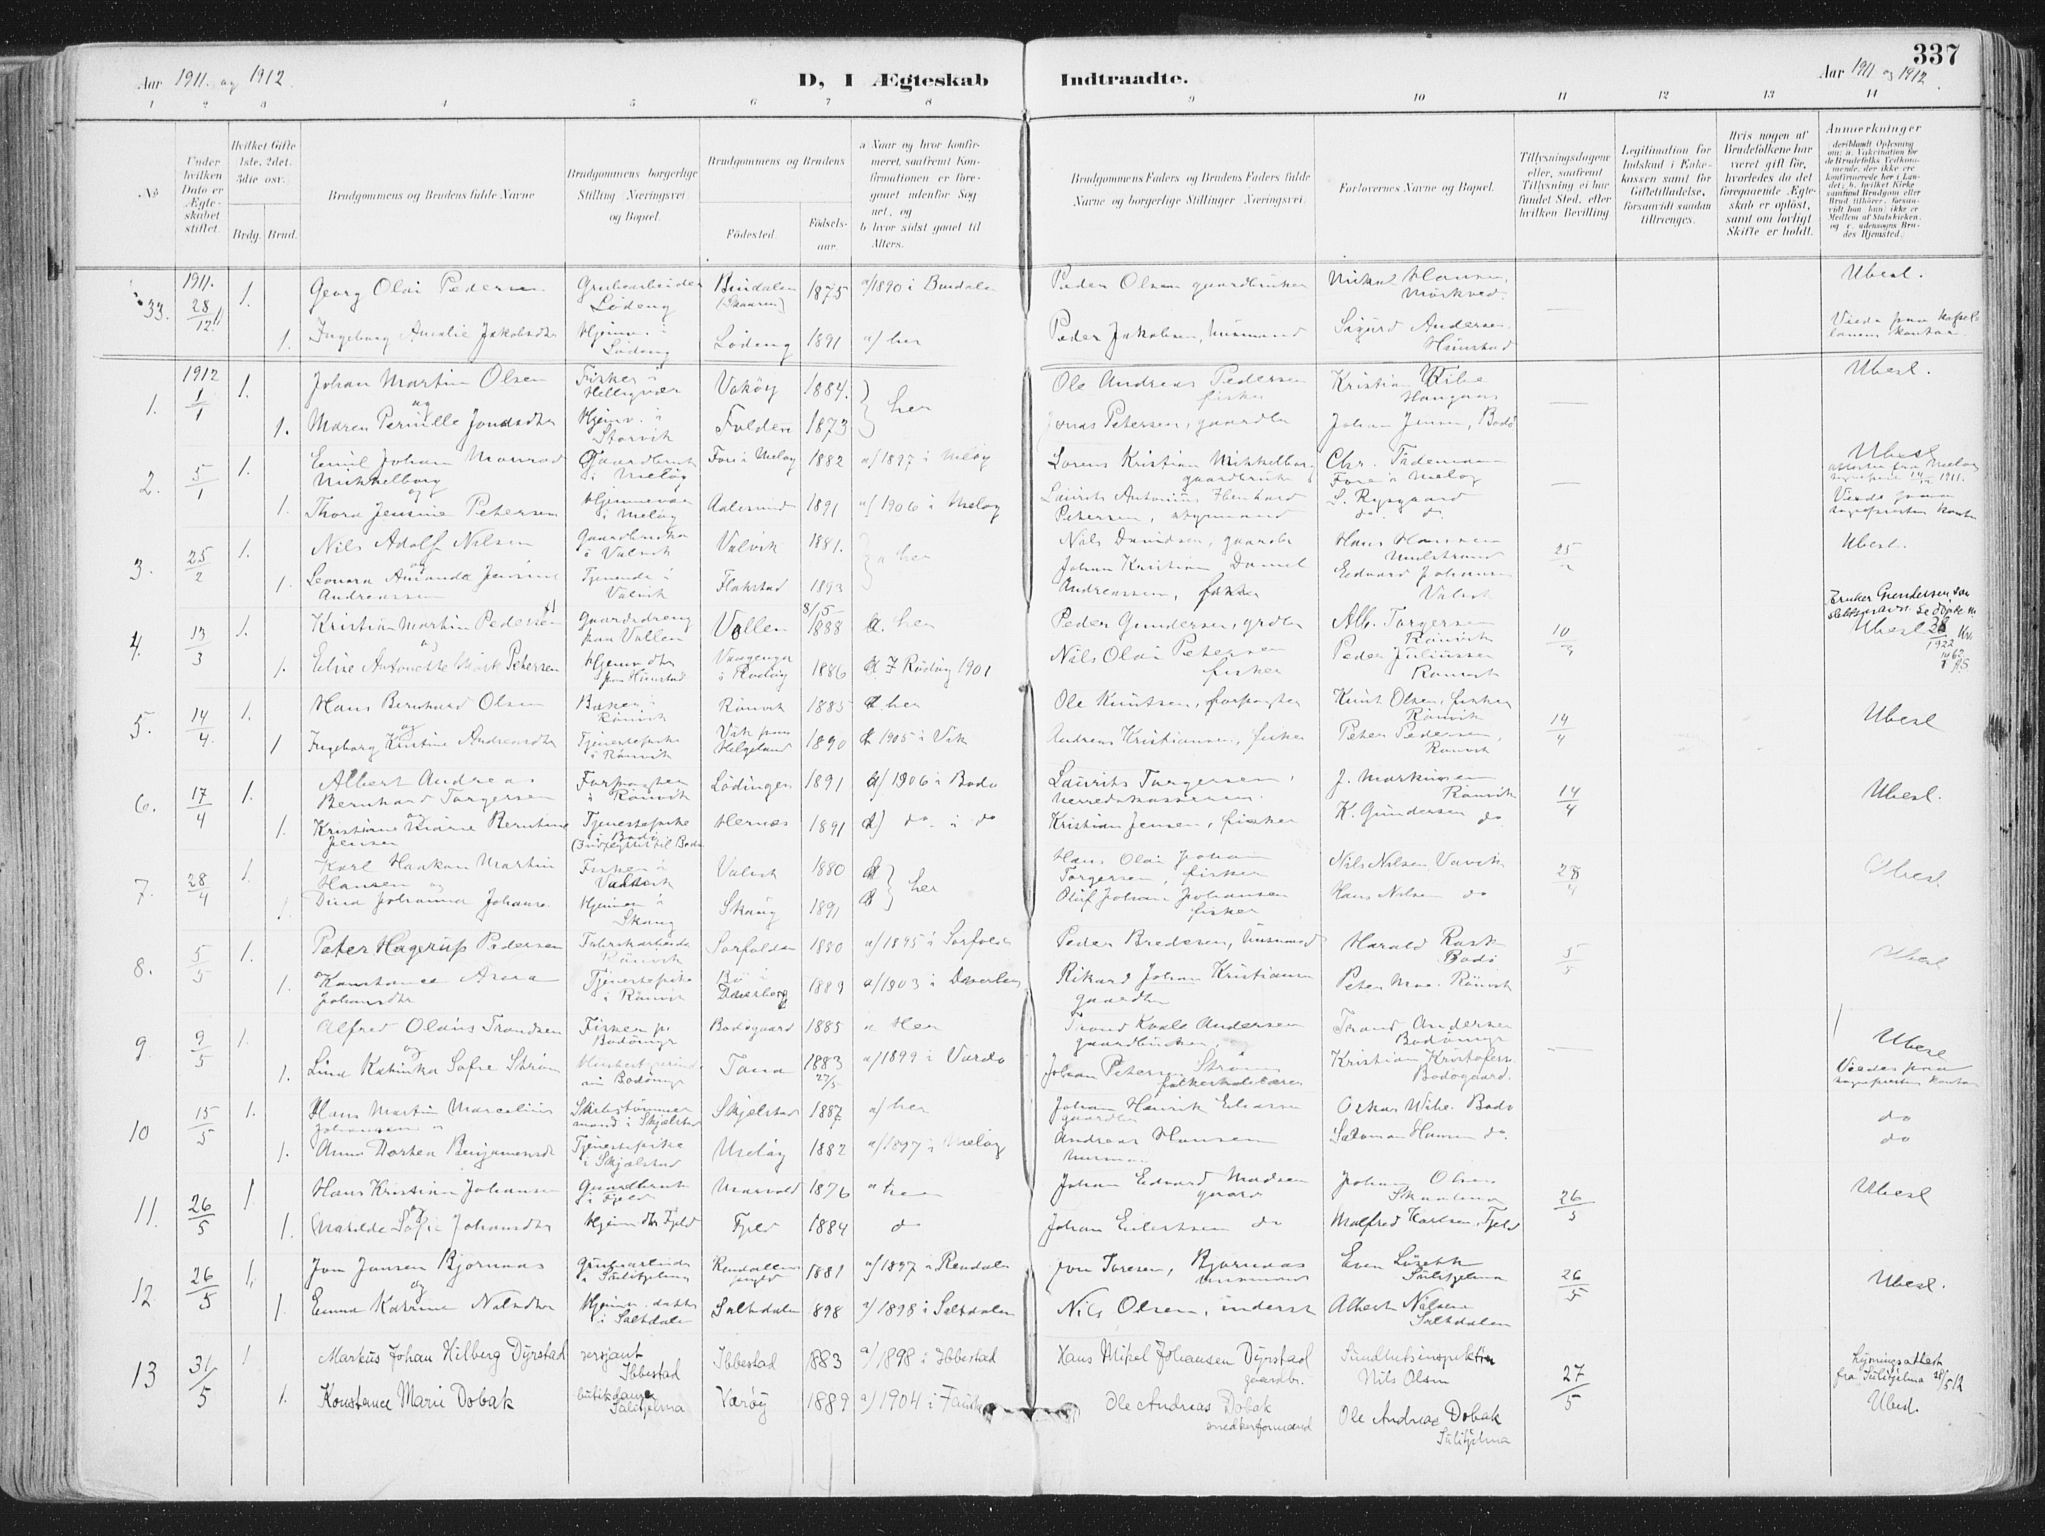 337
Aar 1911. og 1912.
D, 1 Ægteskab
Indtraadte.
Aar 1911 og 1912.
1 2 3 4 5 6 7 8 9 10 11 12 13 14
No
Under hvilken Dato er Ægteskabet stiftet.
Hvilket Gifte 1ste, 2det, 3die osv.
Brdg. Brud.
Brudgommens og Brudens fulde Navne
Brudgommens borgerlige Stilling (Næringsvei) og Bopæl.
Brudgommens og Brudens
Fødested.
Fødselsaar.
a Naar og hvor konfirmeret, saafremt Konfirmationen er foregaaet udenfor Sognet, og
b hvor sidst gaaet til Alters.
Brudgommens Faders og Brudens Faders fulde Navne og borgerlige Stillinger (Næringsvei).
Forlovernes Navne og Bopæl.
Tillysningsdagene eller, saafremt Tillysning ei har fundet Sted, efter hvilken Bevilling
Legitimation for Indskud i Enkekassen samt for Giftetilladelse, forsaavidt saadan tiltrænges.
Hvis nogen af Brudefolkene har været gift før, hvorledes da det foregaaende Ægteskab er opløst, samt om lovligt Skifte er holdt.
Anmærkninger
33. 1911. 28/12 1. Georg Olai Pedersen Grubearbeider Lødeng Bindalen 1875 a/1890 i Bindalen Peder Olsen gaardbruker Mikal Hansen, Mørkved. Ubesl.
1. Ingeborg Amalie Jakobsdtr Hjemv. i Lødeng Lødeng 1891 a/ her Peder Jakobsen, husmand Sigurd Andersen Hunstad Viede paa kapellanens kontor
1. 1912 1/1 1. Johan Martin Olsen og Fisker i Helligvær 1884. her Ole Andreas Pedersen fisker Kristian Wibe Ubesl.
1. Maren Pernille Jonasdtr Hjemv. i Storvik Folden 1873 Jonas Petersen, gaardbr Johan Jensen, Bodø
2. 5/1 1. Emil Johan Monrad Mikkelborg og Gaardbruk i Meløy Fore i Meløy 1882 a/1897 i Meløy Lorens Kristian Mikkelborg gaardbruker Chr. Tidemann Fore i Meløy Ubesl
1. Thora Jensine Petersen Hjemmevær i Meløy Aalesund 1891 a/1906 i Meløy Laurits Antonius Petersen, styrmand S. Rysgaard do. do Viede paa sogneprestens kontor
3. 25/2 1. Nils Adolf Nilsen og Gaardbruker i Valvik Valvik 1881. a her Nils Davidsen, gaardbr Hans Hansen 25/2 Ubesl.
1. Leonora Amanda Jensine Andreassen Tjenende i Valvik Flakstad 1893 Johan Kristian Daniel Andreassen, fisker Edvard Johansen Valvik
Bruker Gundersen som slektsnavn.
4. 13/3 1. Kristian Martin Pedersen og Gaardsdreng paa Vollen Vollen 8/5 1888 a. her Peder Gundersen, grdbr Alb. Torgersen Rønvik 10/3 Ubesl
1. Elise Antonette Petersen Hjemv. dtr paa Hunstad i Rødøy 1886 a/ Rødøy 1901 Nils Olai Petersen fisker Peder Juliussen Rønvik
5. 14/4. 1. Hans Bernhard Olsen og Bøker i Rønvik Rønvik 1885 her Ole Knutsen, forpagter Knut Olsen, fisker Rønvik 14/4 Ubesl
1 Ingeborg Kristine Andreasdtr Tjenestepike i Rønvik Vik paa Helgeland 1890 1905 i Vik Andreas Kristiansen, fisker Peter Pedersen, Rønvik
6. 17/4 1. Albert Andreas Bernhard Torgersen og Forpagter i Rønvik Lødingen 1891 a/1906 i Bodø Laurits Torgersen, herredskasserer. J. Markussen Rønvik 14/4 Ubesl.
1. Kristiane Berntine Jensen Tjenestepike i Bodø Hernes 1891 do. i do Kristian Jensen, fisker K. Gundersen do
7. 28/4 1. Karl Haakon Martin Hansen og Fisker i Valvik Valvik 1880 her Hans Olai Johan Torgersen, fisker Nils Nilsen Valvik 28/4 Ubesl.
1. Dina Johanna Johans. Hjemme i Skaug Skaug 1891 Oluf Johan Johansen fisker Hans Nilsen do
8. 5/5 1. Peter Hagerup Pedersen og Fabrikarbeider Rønvik Sørfolden 1880 a/1895 i Sørfolden Peder Bredesen, husmand Harald Rask Bodø 5/5 Ubesl
1. Konstance Anna Johansdtr Tjenestepike i Rønvik Bø i Dverberg 1889 a/1903 i Dverberg Rikard Johan Kristiansen gaardbr Peter Moe. Rønvik
9 9/5 1. Alfred Olaus Trondsen og Fisker pr Bodømyr Bodøgaard 1885 a Her Trond Kvale Andersen gaardbruker, Trond Andersen Bodømyr Ubesl
1. Lina Katinka Sofie Strøm Bodømyr Tana 1883 27/5 a/1899 i Vardø Johan Petersen Strøm folkeskolelærer Kristian Kristofers. Bodøgaard. Viedes paa sogneprestens kontor
10 15/5 1. Hans Martin Marcelius Johansen Skibstømmermand i Skjelstad Skjelstad 1887 a/ her Johan Henrik Eliassen gaardbr Oskar Wibe. Bodø do
1. Anna Dortea Benjaminsdtr Tjenestepike i Skjelstad Meløy 1882 a/1897 i Meløy Andreas Hansen Salomon Hansen do. do
11. 26/5 1. Hans Kristian Johansen og Gaardbruk i Fjeld 1876 a her Johan Edvard Madsen gaardbr Johan Olsen 26/5 Ubesl
1. Matilde Sofie Johansdtr Hjemv. dtr Fjeld Fjeld 1884 do Johan Eilertsen do Malfred Karlsen, Fjeld
12. 26/5 1. Jon Jonsen Bjørnaas og Grubearbeider i Sulitjelma Rendalen 1881 a/1897 i Rendalen Jon Toresen, Bjørnaas husmand Even Sulitjelma 26/5 Ubesl.
1. Emma Katrine Nilsdtr Hjemv. datter i Saltdalen Saltdalen 898 a/1898 i Saltdalen Nils Olsen, inderst Albert Nilsen Saltdalen
13 31/5 1 Markus Johan Hilberg Dyrstad sersjant Ibbestad Ibbestad 883 a/1898 i Ibbestad Hans Mikal Johansen Dyrstad gaardbr. Sundhetsinspektør Nils Olsen 27/5 Lysningsattest fra Sulitjelma 28/5 12
1. Konstance Marie Dobak butikdame Sulitjelma Værøy 1889 a/1904 i Fauske Ole Andreas Dobak snedkerformand Ole Andreas Dobak Sulitjelma Ubesl.